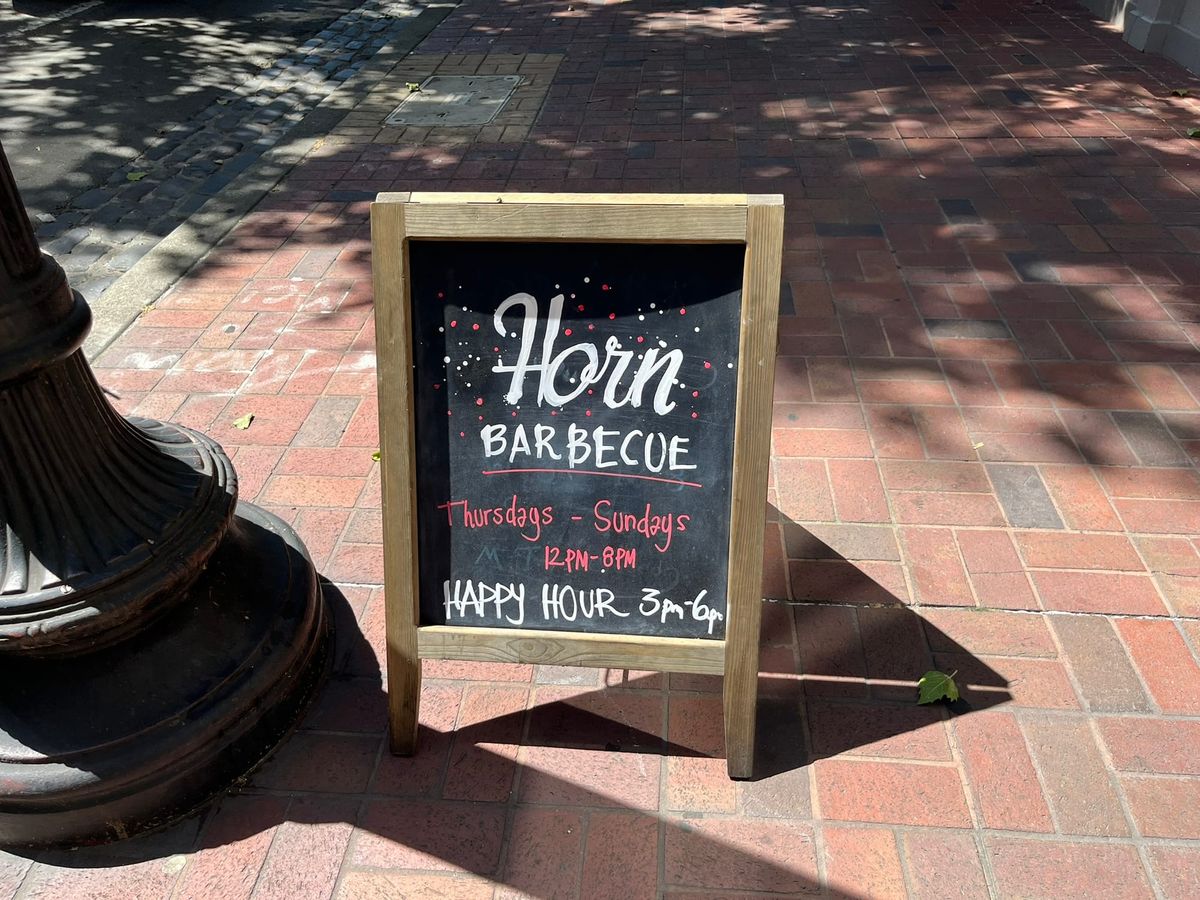 Horn
BARBECUE
Thursdays - Sundays
12PM-8PM
HAPPY HOUR 3pm-6pm